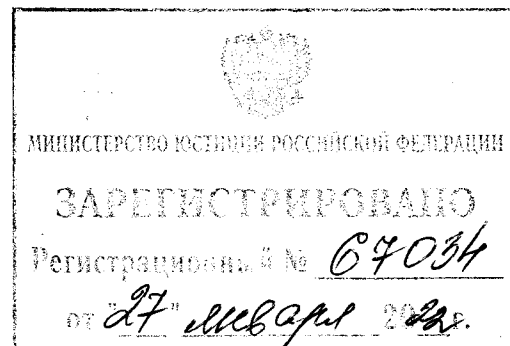 МИНИСТЕРСТВО ЮСТИЦИИ РОССИЙСКОЙ ФЕДЕРАЦИИ
ЗАРЕГИСТРИРОВАНО
Регистрационный № 67034
от "27" января 2022 г.